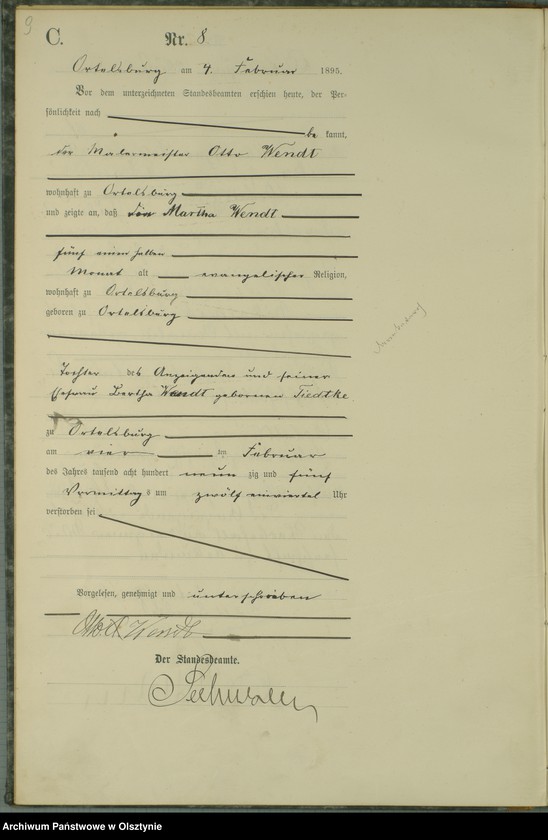 9
C.
Nr. 8
Ortelsburg am 4. Februar 1895.
Vor dem unterzeichneten Standesbeamten erschien heute, der Per-
sönlichkeit nach
be kannt,
der Malermeister Otto Wendt
wohnhaft zu Ortelsburg
und zeigte an, daß die Martha Wendt
fünf einen halben
Monat alt evangelischer Religion,
wohnhaft zu Ortelsburg
geboren zu Ortelsburg
Tochter des Anzeigenden und seiner
Ehefrau Bertha Wendt geborenen Tiedtke
zu Ortelsburg
am vier ten Februar
des Jahres tausend acht hundert neun zig und fünf
Vormittags um zwölf einviertel Uhr
verstorben sei
Vorgelesen, genehmigt und unterschrieben
Otto Wendt
Der Standesbeamte.
Archiwum Państwowe w Olsztynie